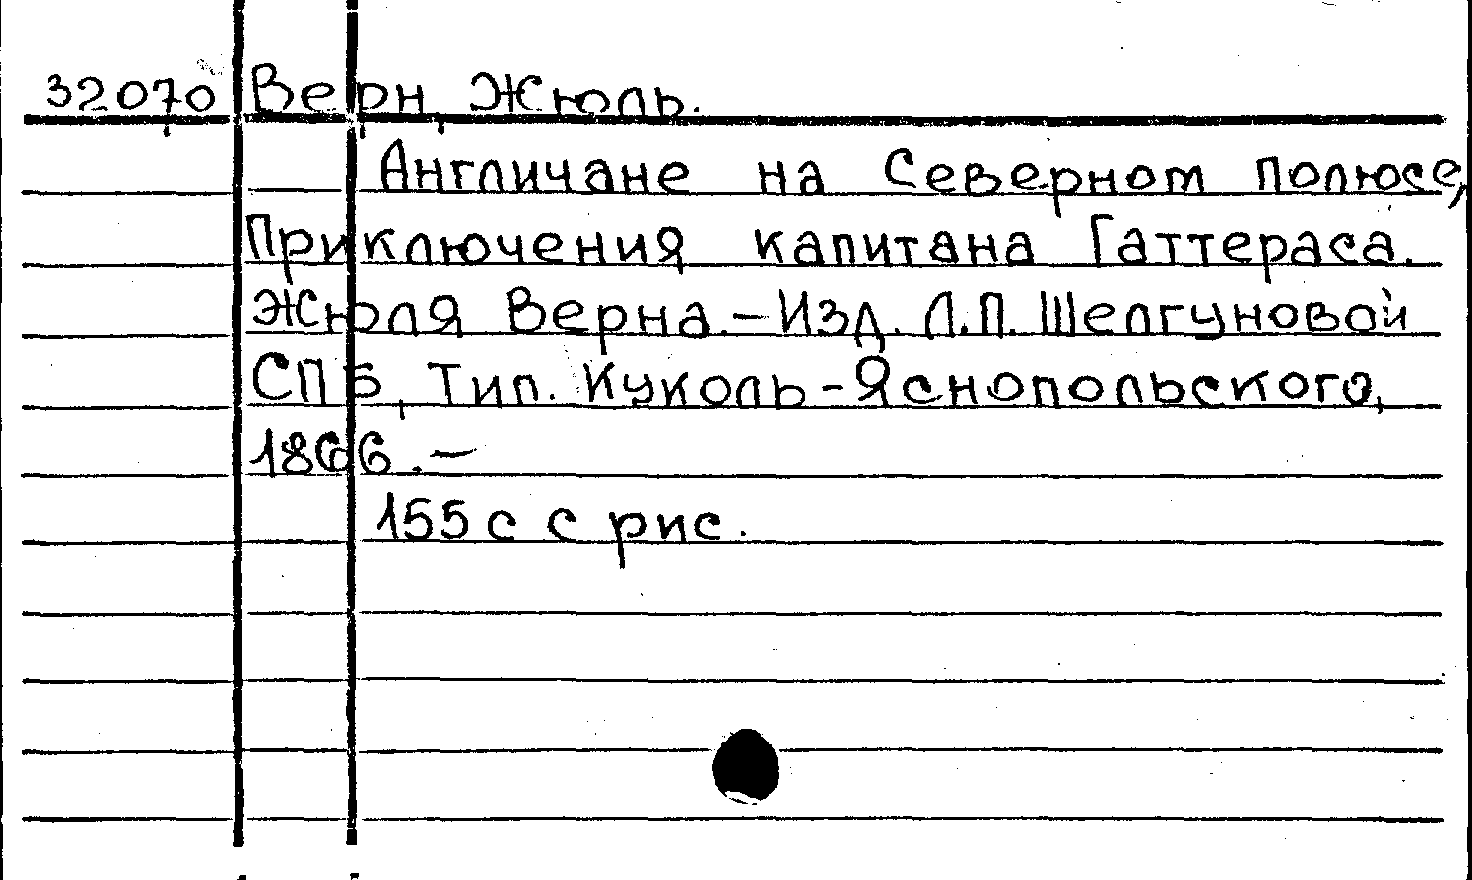 32070 Верн, Жюль.
Англичане на Северном полюсе,
Приключения капитана Гаттераса.
Жюля Верна.-Изд. Л.П. Шелгуновой
СПБ, Тип. Куколь-Яснопольского,
1866.-
155 с с рис.